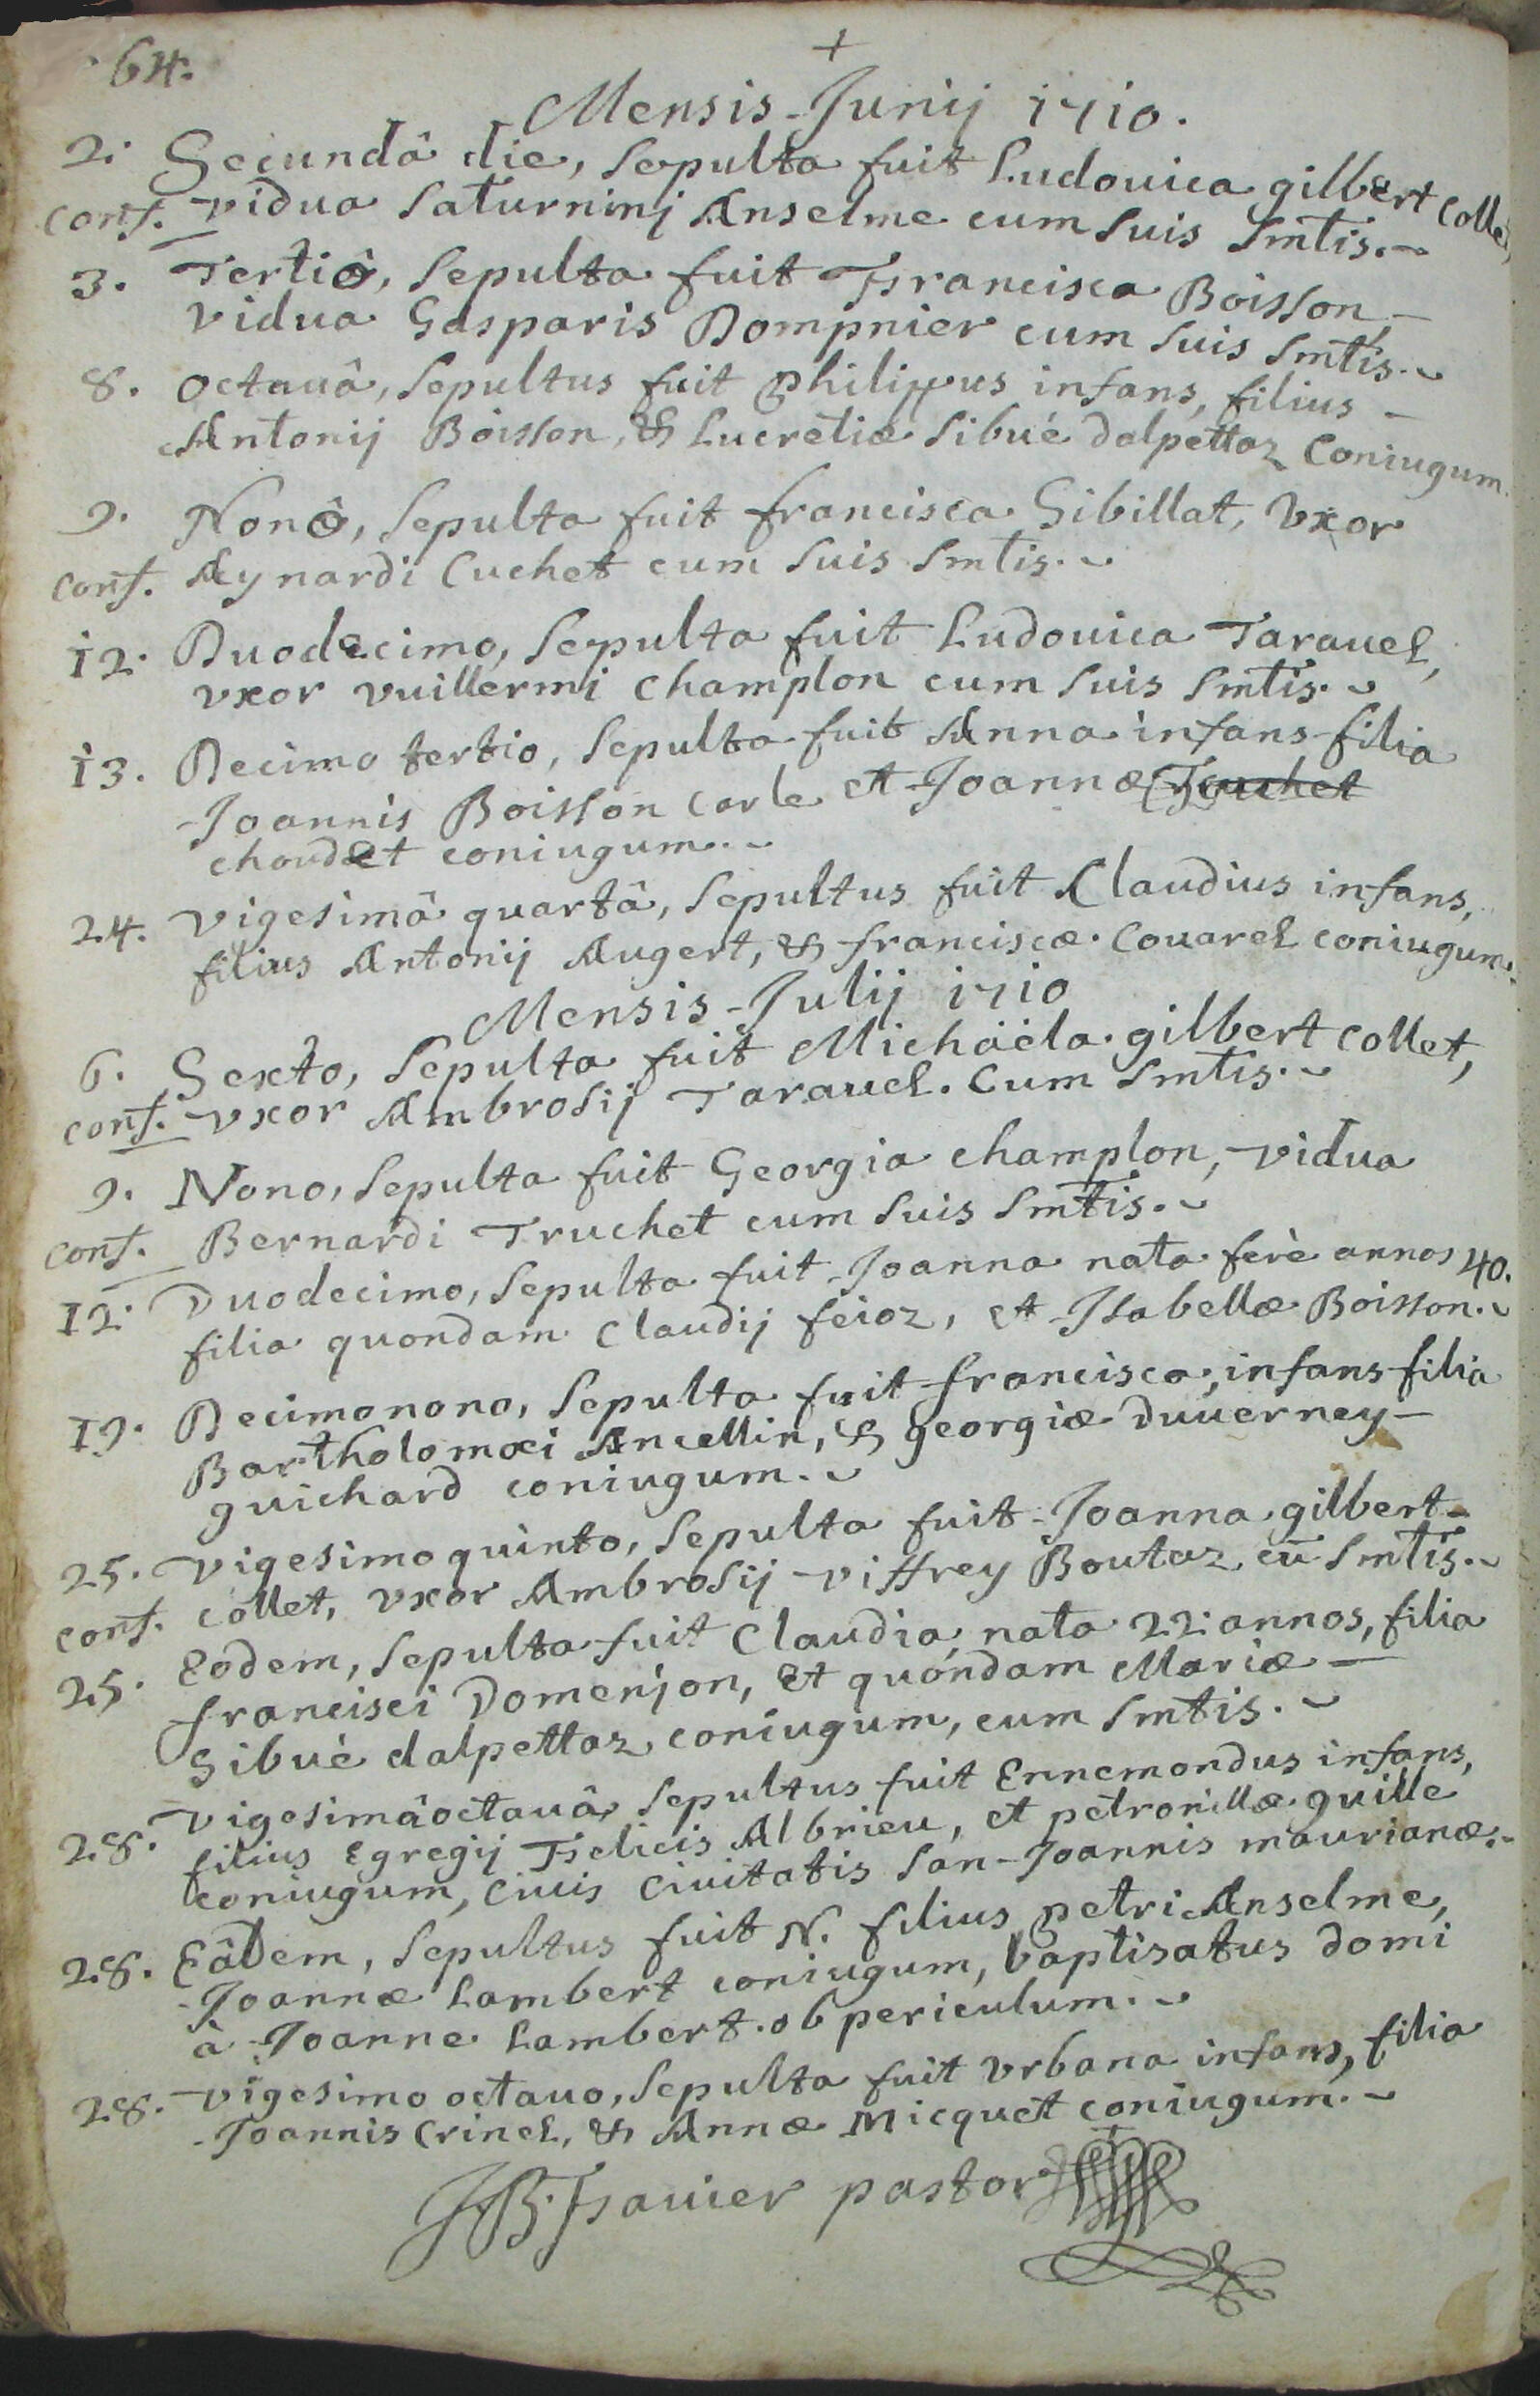 64.
+
Mensis Junij 1710.
2. Secundâ die, sepulta fuit Ludouica gilbert collet,
conf. vidua Saturninj Anselme cum suis Smtis.
3. Tertiô, sepulta fuit Francisca Boisson,
vidua Gasparis Dompnier cum suis Smtis.
8. octauâ, sepultus fuit Philippus infans, filius
Antonij Boisson, & Lucretiæ Sibué dalpettaz Coniugum.
9. Nonô, sepulta fuit francisca Gibillat, vxor
conf. Aynardi Cuchet cum suis Smtis.
12. Duodecimo, sepulta fuit Ludouica Tarauel,
vxor vuillermi champlon cum suis Smtis.
13. Decimo tertio, sepulta fuit Anna infans filia
Joannis Boisson carle et Joannæ
chaudet coniugum.
24. vigesimâ quartâ, sepultus fuit Claudius infans,
filius Antonij Augert, & franciscæ Couarel coniugum.
Mensis Julij 1710
6. Sexto, sepulta fuit Michaëla gilbert collet,
conf. vxor Ambrosij Tarauel. Cum Smtis.
9. Nono, sepulta fuit Georgia champlon, vidua
conf. Bernardi Truchet cum suis Smtis.
12. Duodecimo, sepulta fuit Joanna nata ferè annos 40.
filia quondam Claudij feioz, et Isabellæ Boisson.
19. Decimonono, sepulta fuit francisca, infans filia
Bartholomæi Ancellin, & georgiæ duuerney
guichard coniugum.
25. vigesimo quinto, sepulta fuit Joanna gilbert
conf. collet, vxor Ambrosij viffrey Boutaz cū Smtis.
25. Eodem, sepulta fuit Claudia nata 22 annos, filia
francisci Domenjon, et quóndam Mariæ
Sibué dalpettaz coniugum, cum Smtis.
28. vigesimâoctauâ, sepultus fuit Ennemondus infans,
filius Egregij Felicis Albrieu, et petronillæ guille
coniugum, ciuis Ciuitatis San-Joannis maurianæ.
28. Eâdem, sepultus fuit N. filius petri Anselme,
Joannæ Lambert coniugum, baptisatus domi
à Joanne Lambert ob periculum.
28. vigesimo octauo, sepulta fuit vrbana infans, filia
Joannis Crinel, & Annæ Micquet coniugum.
JB. Fauier pastor